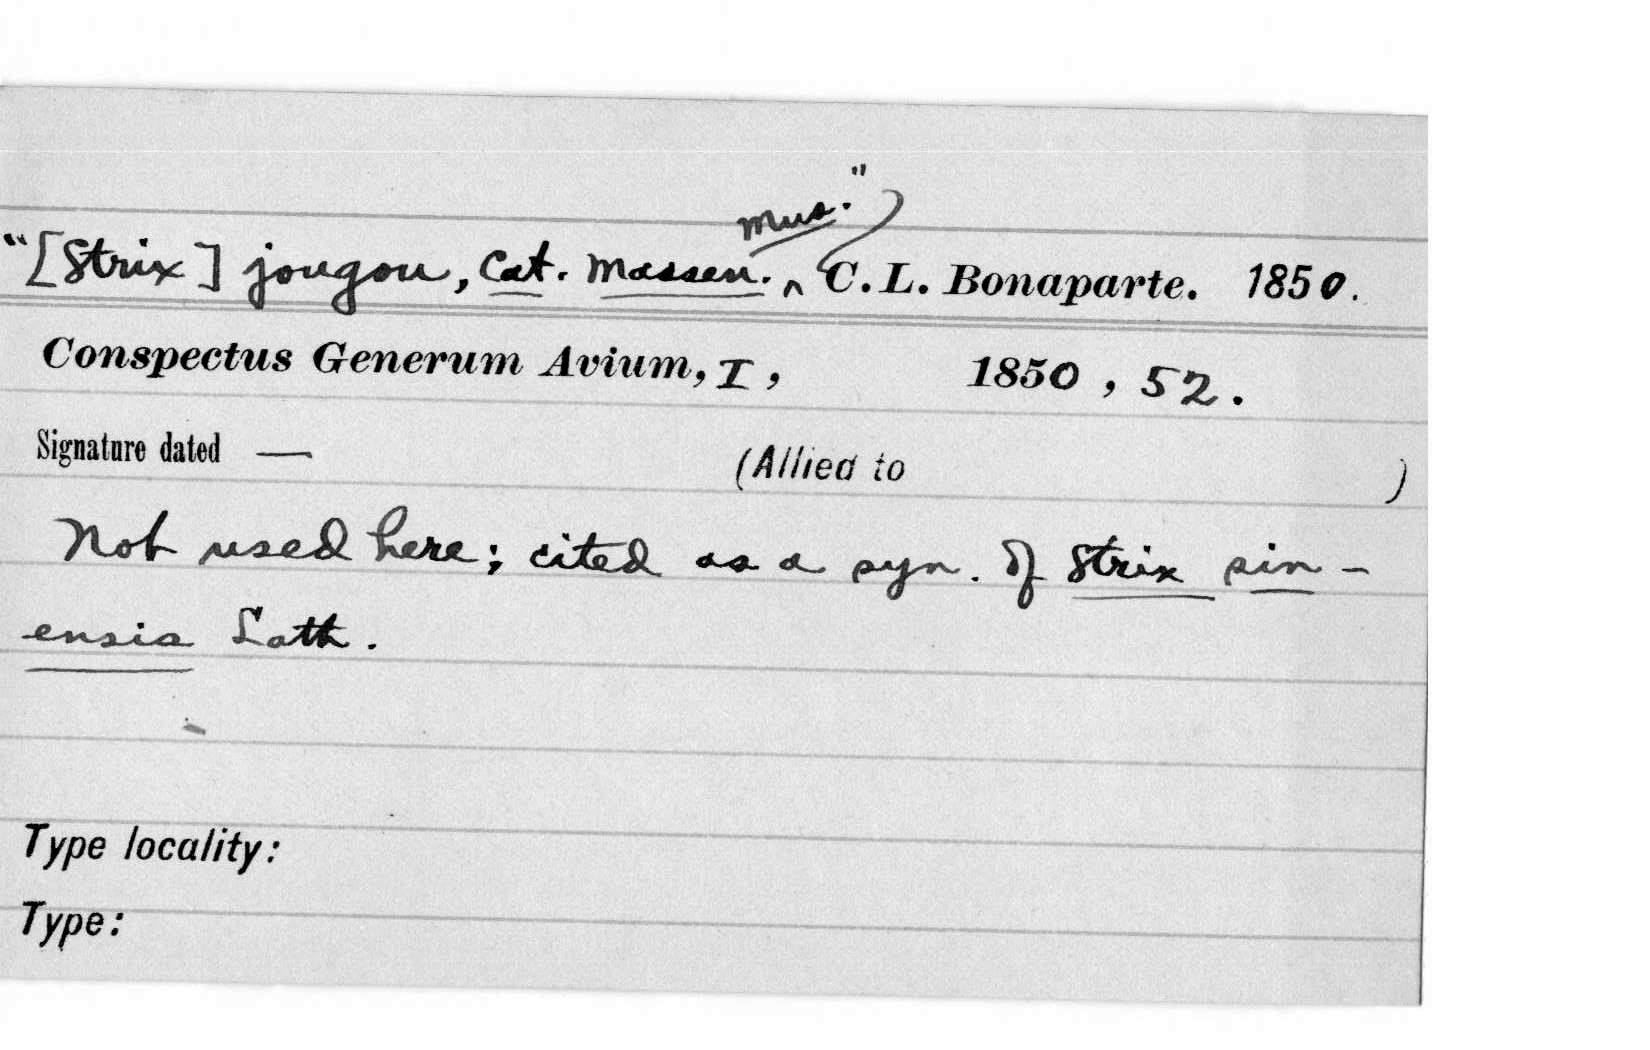 "[Strix] jougou, Cat. Massen. Mus." C. L. Bonaparte. 1850.
Conspectus Generum Avium, I, 1850, 52.
Signature dated — (Allied to )
Not used here; cited as a syn. of Strix sin-
ensis Lath.
Type locality:
Type: